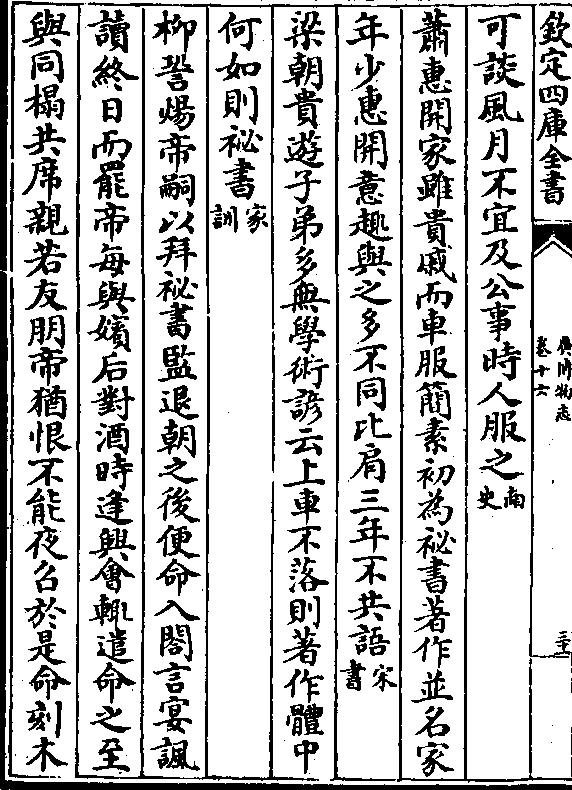 欽定四庫全書
廣博物志
卷十六
可談風月不宜及公事時人服之南史
蕭惠開家雖貴戚而車服簡素初為祕書著作並名家
年少惠開意趣與之多不同比肩三年不共語宋書
梁朝貴遊子弟多無學術諺云上車不落則著作體中
何如則祕書家訓
柳䛒煬帝嗣以拜祕書監退朝之後便命入閤言宴諷
讀終日而罷帝每與嬪后對酒時逢興㑹輙遣命之至
與同榻共席親若友朋帝猶恨不能夜召於是命刻木